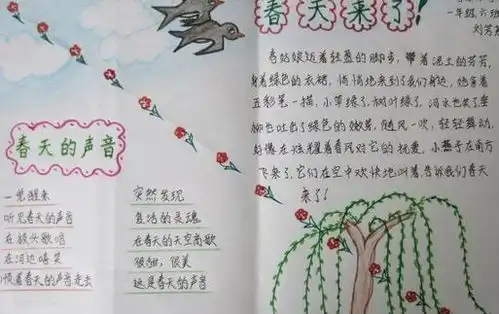 春天的声音
一觉醒来
听见春天的声音
在枝头歌唱
在河边嬉笑
顺着春天的声音走去
突然发现
复活的灵魂
在春天的天空高歌
很甜，很美
这是春天的声音
春天来了!
一年级六班
刘芳
春姑娘迈着轻盈的脚步，带着泥土的芬芳，
身着绿色的衣裙，悄悄地来到了我们身边，她拿着
五彩笔一描，小草绿了，树叶绿了，河水也笑了，
柳也吐出了绿色的嫩芽，随风一吹，轻轻舞动，
好像在炫耀着春风对它的抚爱，小燕子在南方
飞来了，它们在空中欢快地叫着，告诉我们春天
来了!